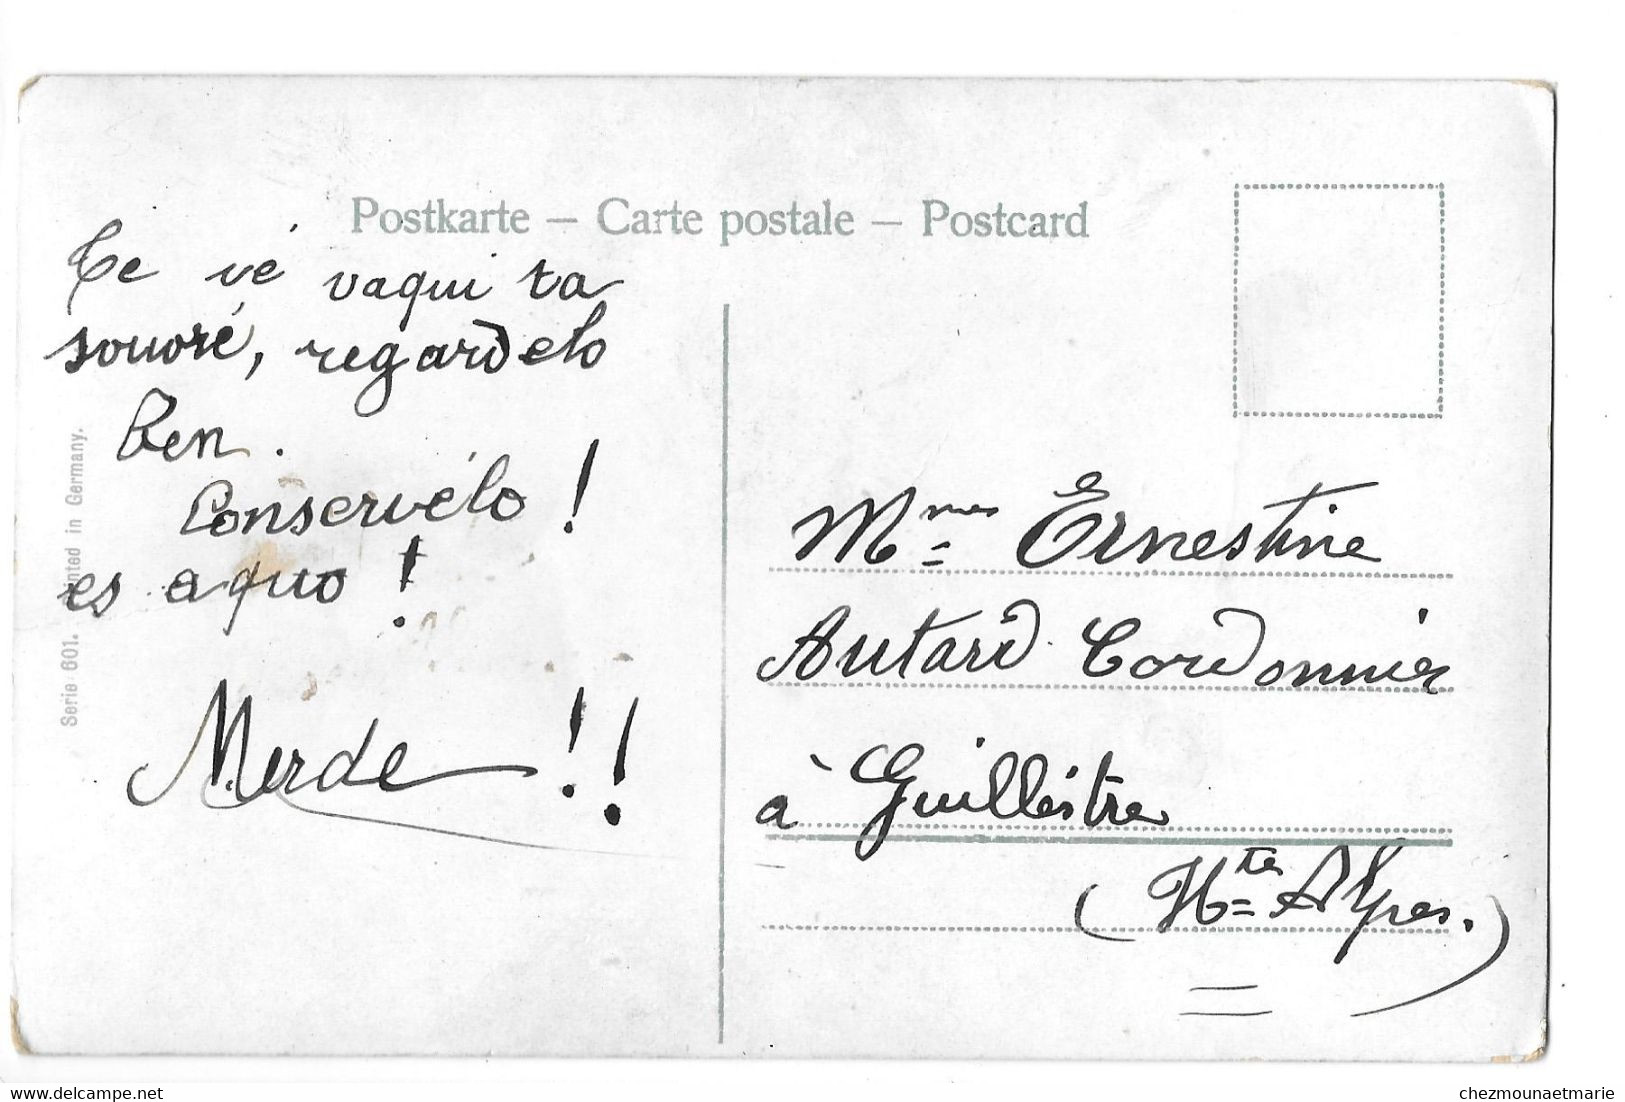 Postkarte — Carte postale — Postcard
Te vé vaqui ta
souore, regardelo
Ben.
Conservélo !
es aquo !
Merde !!
Serie 601. Printed in Germany.
Mmes Ernestine
Autard Cordonnier
à Guillestre
(Htes Alpes.)
chezmounaetmarie